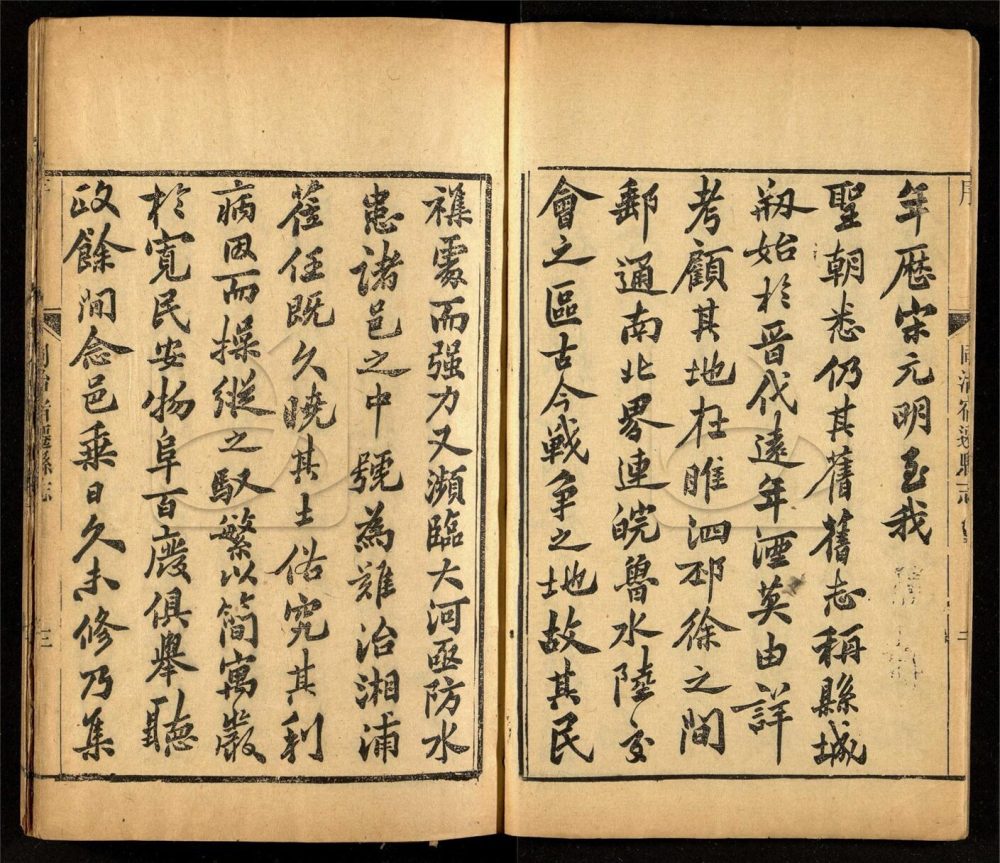 年歷宋元明至我
聖朝悉仍其舊舊志稱縣城
剏始於晉代遠年湮莫由詳
考顧其地在睢泗邳徐之間
郵通南北界連皖魯水陸交
會之區古今戰爭之地故其民
襍處而强力又瀕臨大河亟防水
患諸邑之中號為難治湘浦
莅任既久曉其土俗究其利
病因而操縱之馭繁以簡寓嚴
於寬民安物阜百廢俱舉聽
政餘閒念邑乘日久未修乃集
序
同治宿遷縣志
同治宿遷縣志
三